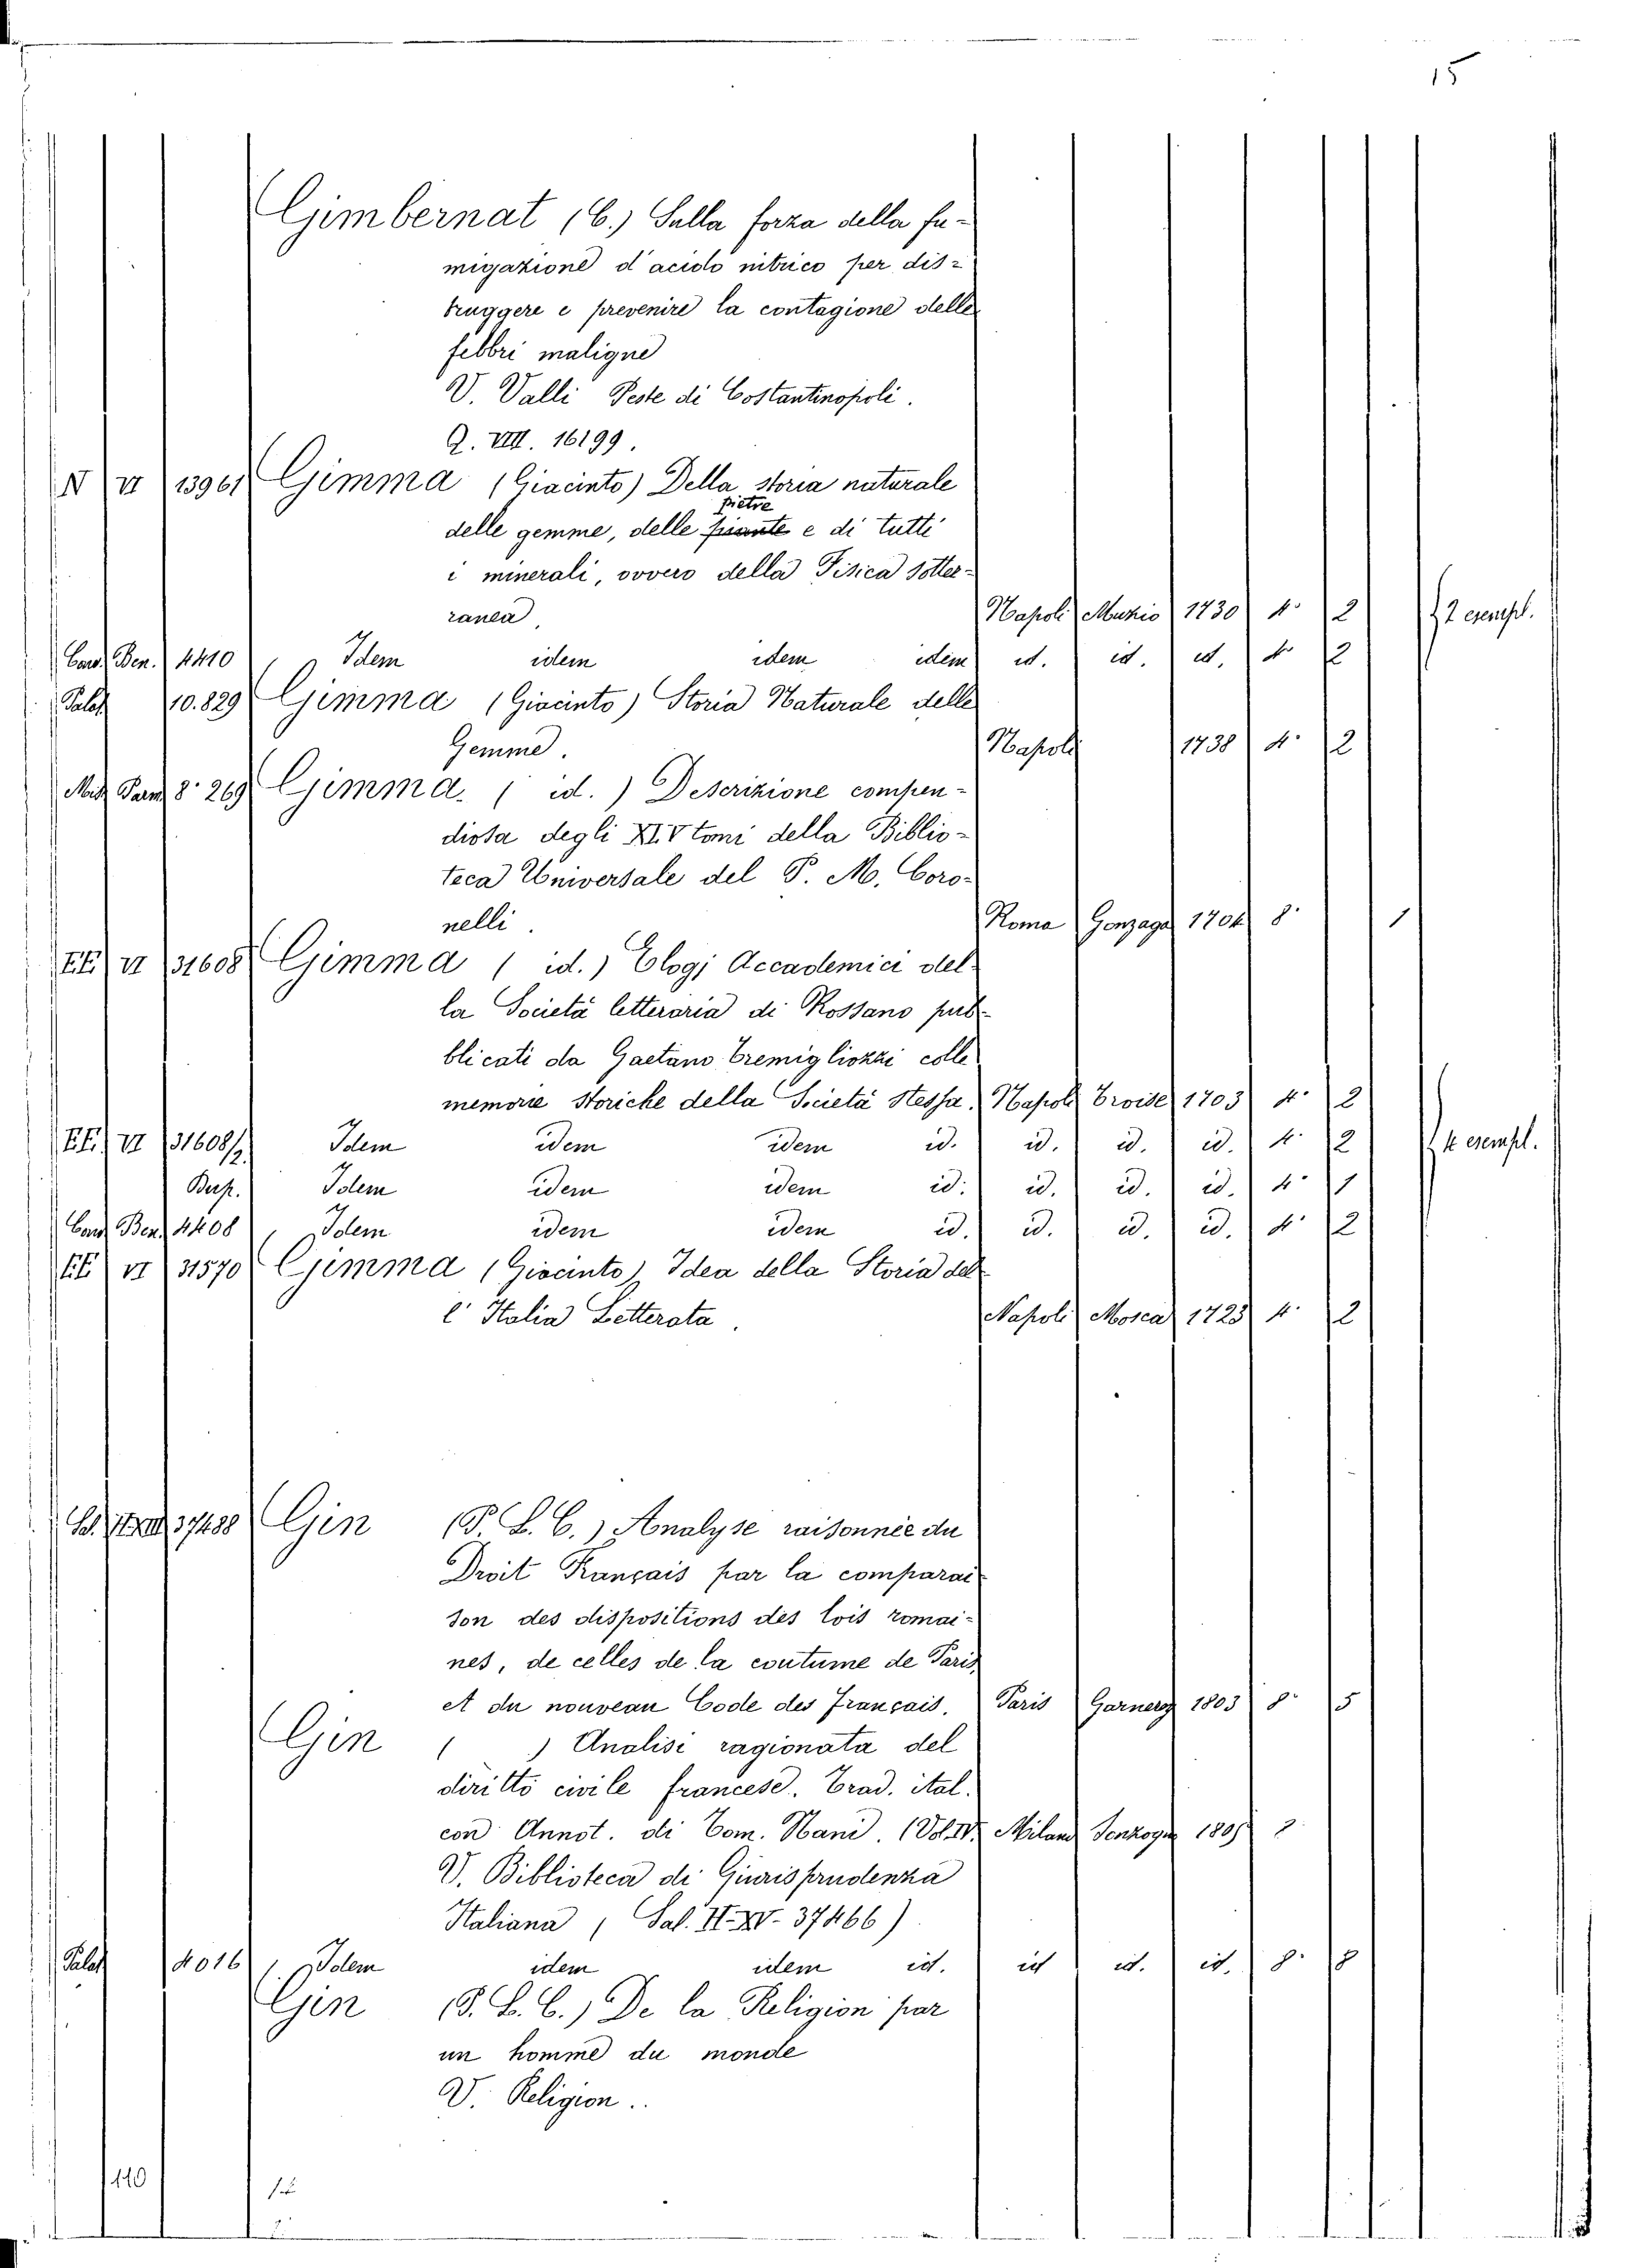 15
Gimbernat (C.) Sulla forza della fu-
migazione d'acido nitrico per dis-
truggere e prevenire la contagione delle
febbri maligne
V. Valli Peste di Costantinopoli.
Q. VIII. 16199.
N VI 13961 Gimma (Giacinto) Della storia naturale
pietre
delle gemme, delle piante e di tutti
i minerali, ovvero della Fisica sotter-
ranea. Napoli Muzio 1730 4° 2 2 esempl.
Ben. 4410 Idem idem idem idem id. id. id. 4° 2
Palat 10.829 Gimma (Giacinto) Storia Naturale delle
Gemme. Napoli 1738 4° 2
Parm 8° 269 Gimma. ( id. ) Descrizione compen-
diosa degli XLV tomi della Biblio-
teca Universale del P. M. Coro-
nelli. Roma Gonzaga 1704 8° 1
EE VI 31608 Gimma ( id. ) Elogj Accademici del-
la Società letteraria di Rossano pub-
blicati da Gaetano Tremigliozzi colle
memorie storiche della Società stessa. Napoli Troise 1703 4° 2
EE. VI 31608/2 Idem idem idem id. id. id. id. 4° 2 4 esempl.
Idem idem idem id. id. id. id. 4° 1
Ben. 4408 Idem idem idem id. id. id. id. 4° 2
EE VI 31570 Gimma (Giacinto) Idea della Storia del-
l'Italia Letterata. Napoli Mosca 1723 4° 2
37488 Gin (P. L. C.) Analyse raisonnée du
Droit Français par la comparai-
son des dispositions des lois romai-
nes, de celles de la coutume de Paris,
et du nouveau Code des Français. Paris Garnery 1803 8° 5
Gin ( ) Analisi ragionata del
diritto civile francese. Trad. ital.
con Annot. di Tom. Nani. (Vol. IV. Milano Sonzogno
V. Biblioteca di Giurisprudenza
Italiana (Sal. II. XV. 37466)
Palat 4016 Idem idem idem id. id id. id. 8° 8
Gin (P. L. C.) De la Religion par
un homme du monde
V. Religion..
110